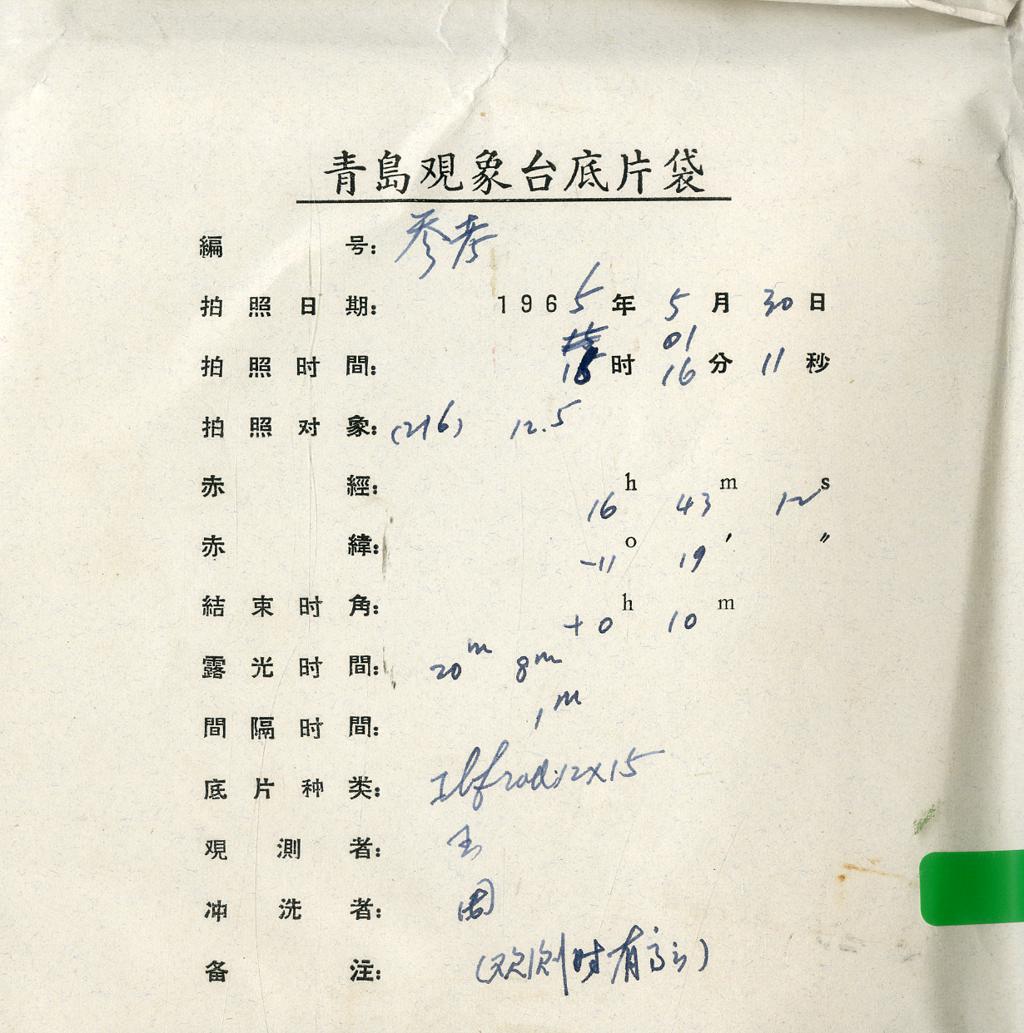 青島观象台底片袋
編号: 参考
拍照日期: 1965年 5月 30日
01
拍照时間: 时 16分 11秒
拍照对象: (216) 12.5
赤經: 16h 43m 12s
赤緯: -11° 19′ ″
結束时角: +0h 10m
露光时間: 20m 8m
間隔时間: 1m
底片种类: Ilfrad 12x15
观測者: 王
冲洗者: 周
备注: (观测时有高云)